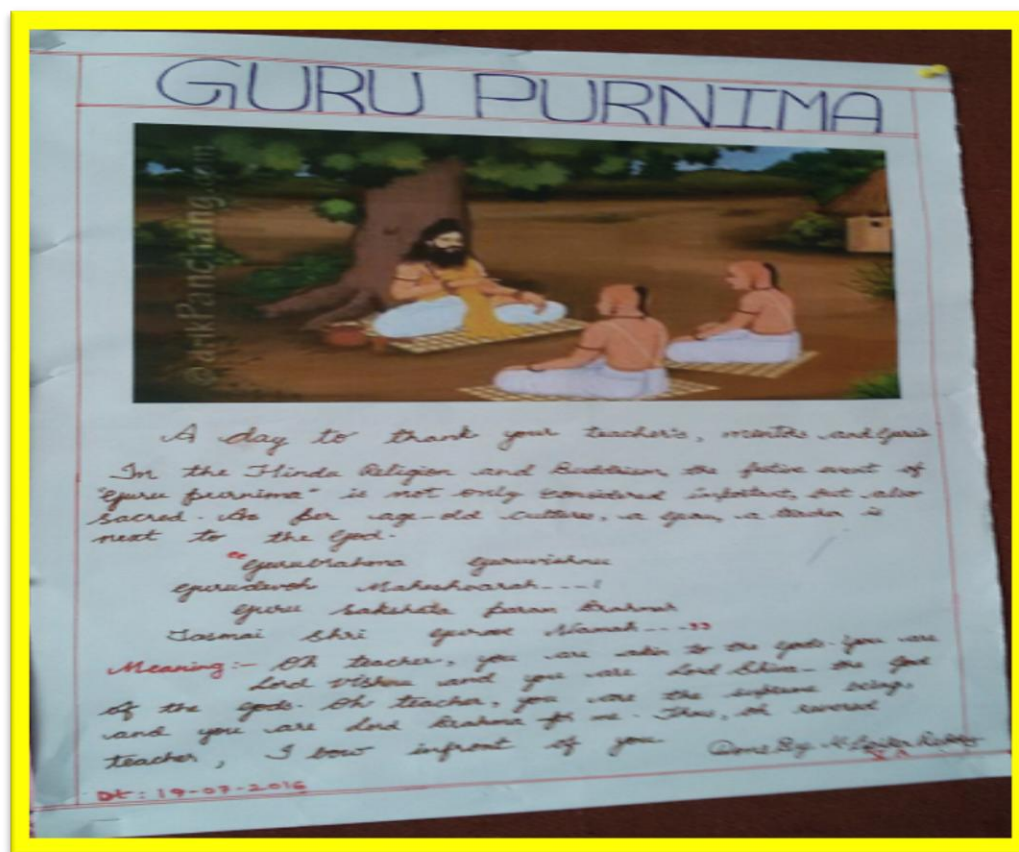 GURU PURNIMA
©drikPanchang.com
A day to thank your teacher's, mentors and Guru's
In the Hindu Religion and Buddhism, the festive event of
"Guru purnima" is not only considered important, but also
sacred. As per age-old culture, a guru, a teacher is
next to the God.
"GuruBrahma Guruvishnu
Gurudevoh Maheshwarah---!
Guru Sakshata Paran Brahma
Tasmai Shri Gurave Namah---"
Meaning:- Oh teacher, you are akin to the gods. You are
Lord Vishnu and you are Lord Shiva- the God
of the gods. Oh teacher, you are the supreme being,
and you are Lord Brahma for me. Thus, oh revered
teacher, I bow infront of you
Done By Reddy
Dt: 19-07-2016